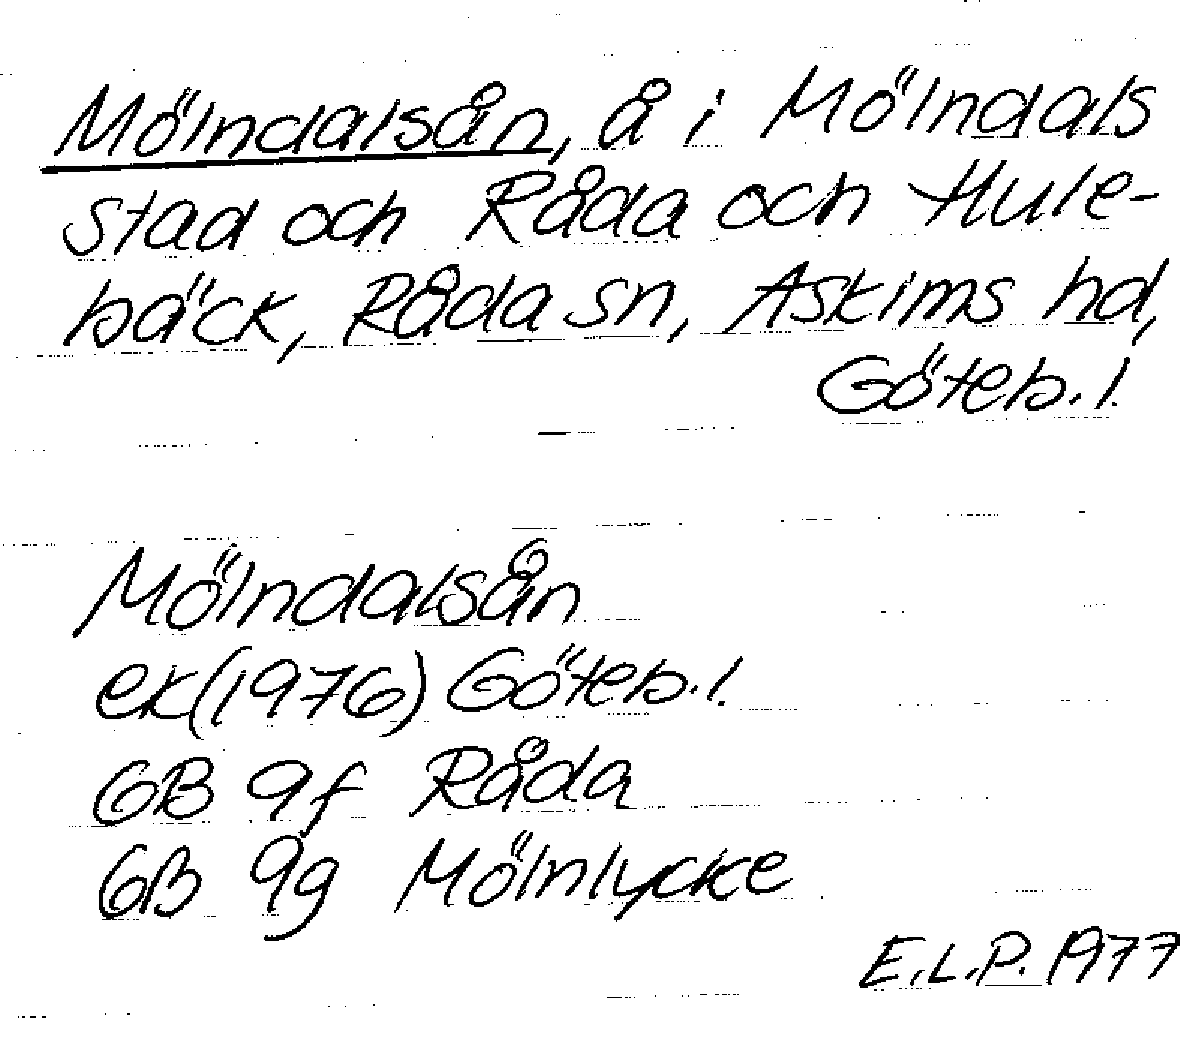 Mölndalsån, å i Mölndals
stad och Råda och Hule-
bäck, Råda sn, Askims hd,
Göteb. l.
Mölndalsån
ek (1976) Göteb. l.
6B 9f Råda
6B 9g Mölnlycke
E.L.P. 1977